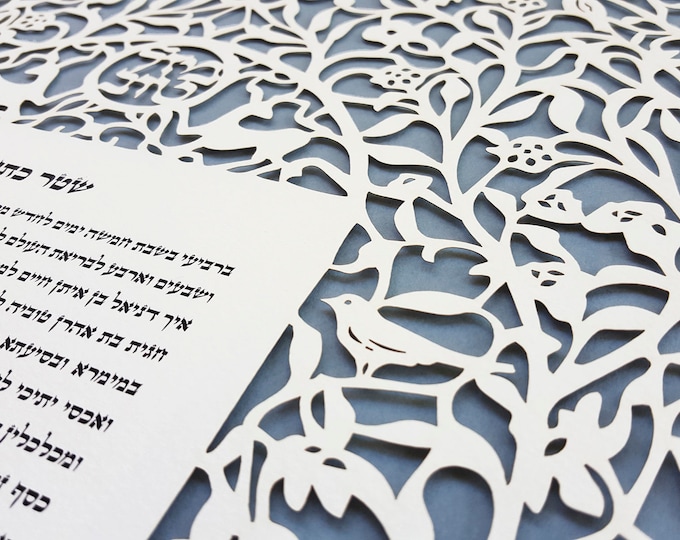 שטר
ברביעי בשבת חמשה ימים לחדש
ושבעים וארבע לבריאת העולם
איך דניאל בן איתן חיים
חגית בת אהרן טוביה
במימרא ובסיעתא
ואכסי יתיכי
ומכלכלין
כסף